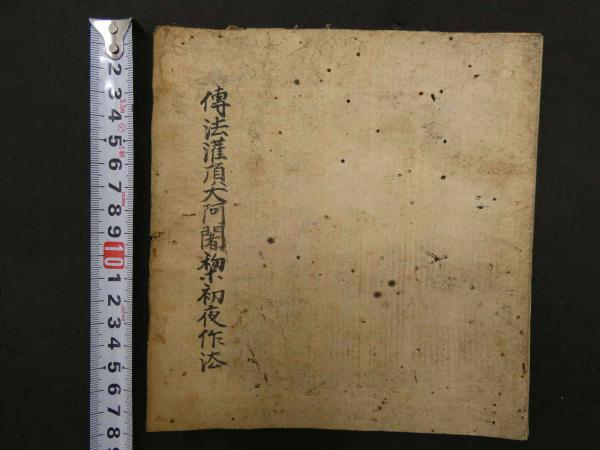 傳法灌頂大阿闍梨初夜作法
2
3
4
5
6
7
8
9
10
1
2
3
4
5
6
7
8
9
5.5m